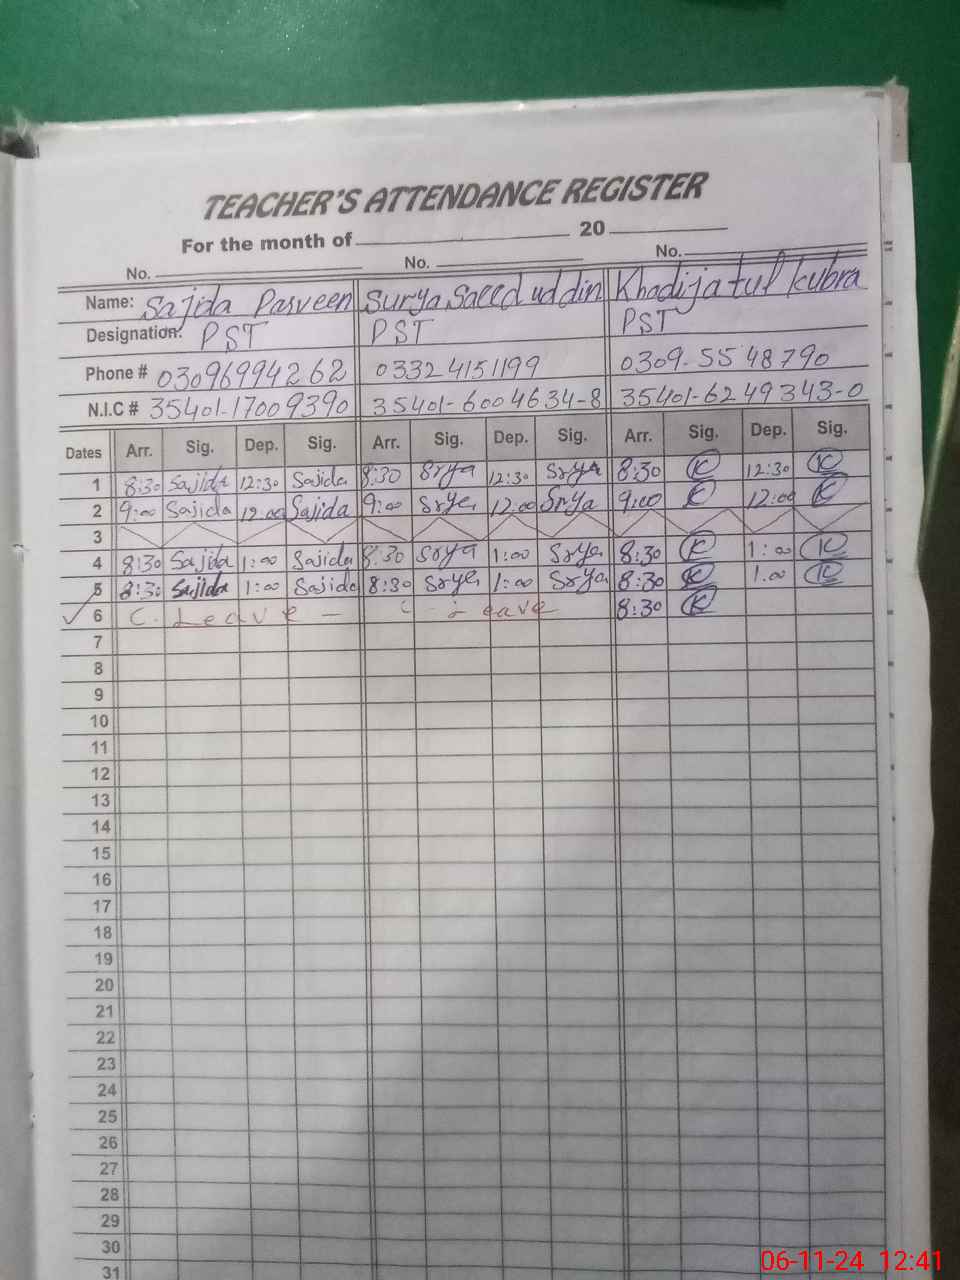 TEACHER'S ATTENDANCE REGISTER
For the month of 20
No. No. No.
Name: Sajda Parveen Surya Saeed uddin Khadija tul kubra
Designation: PST PST PST
Phone # 03096994262 03324151199 0309-5548790
N.I.C # 35401-17009390 35401-6004634-8 35401-6249343-0
Dates Arr. Sig. Dep. Sig. Arr. Sig. Dep. Sig. Arr. Sig. Dep. Sig.
1 8:30 Sajida 12:30 Sajida 8:30 Srya 12:30 Srya 8:30 K 12:30 K
2 9:00 Sajida 12:00 Sajida 9:00 Srya 12:00 Srya 9:00 K 12:00 K
3
4 8:30 Sajida 1:00 Sajida 8:30 Srya 1:00 Srya 8:30 K 1:00 K
5 8:30 Sajida 1:00 Sajida 8:30 Srya 1:00 Srya 8:30 K 1.00 K
6 C. Leave C. Leave 8:30 K
7
8
9
10
11
12
13
14
15
16
17
18
19
20
21
22
23
24
25
26
27
28
29
30
31
06-11-24 12:41